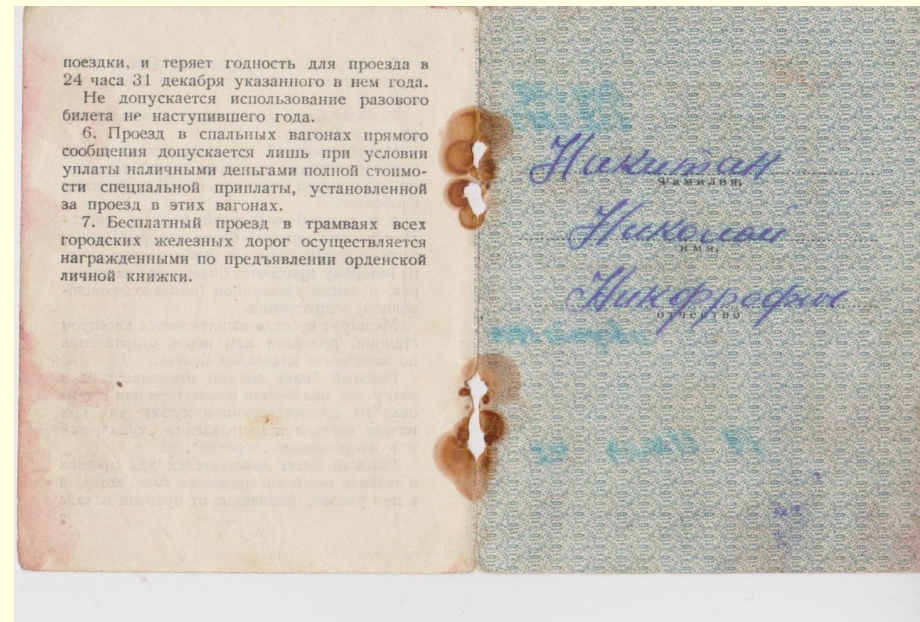 поездки, и теряет годность для проезда в
24 часа 31 декабря указанного в нем года.
Не допускается использование разового
билета не наступившего года.
6. Проезд в спальных вагонах прямого
сообщения допускается лишь при условии
уплаты наличными деньгами полной стоимо-
сти специальной приплаты, установленной
за проезд в этих вагонах.
7. Бесплатный проезд в трамваях всех
городских железных дорог осуществляется
награжденными по предъявлении орденской
личной книжки.
Никитин
фамилия,
Николай
имя,
отчество